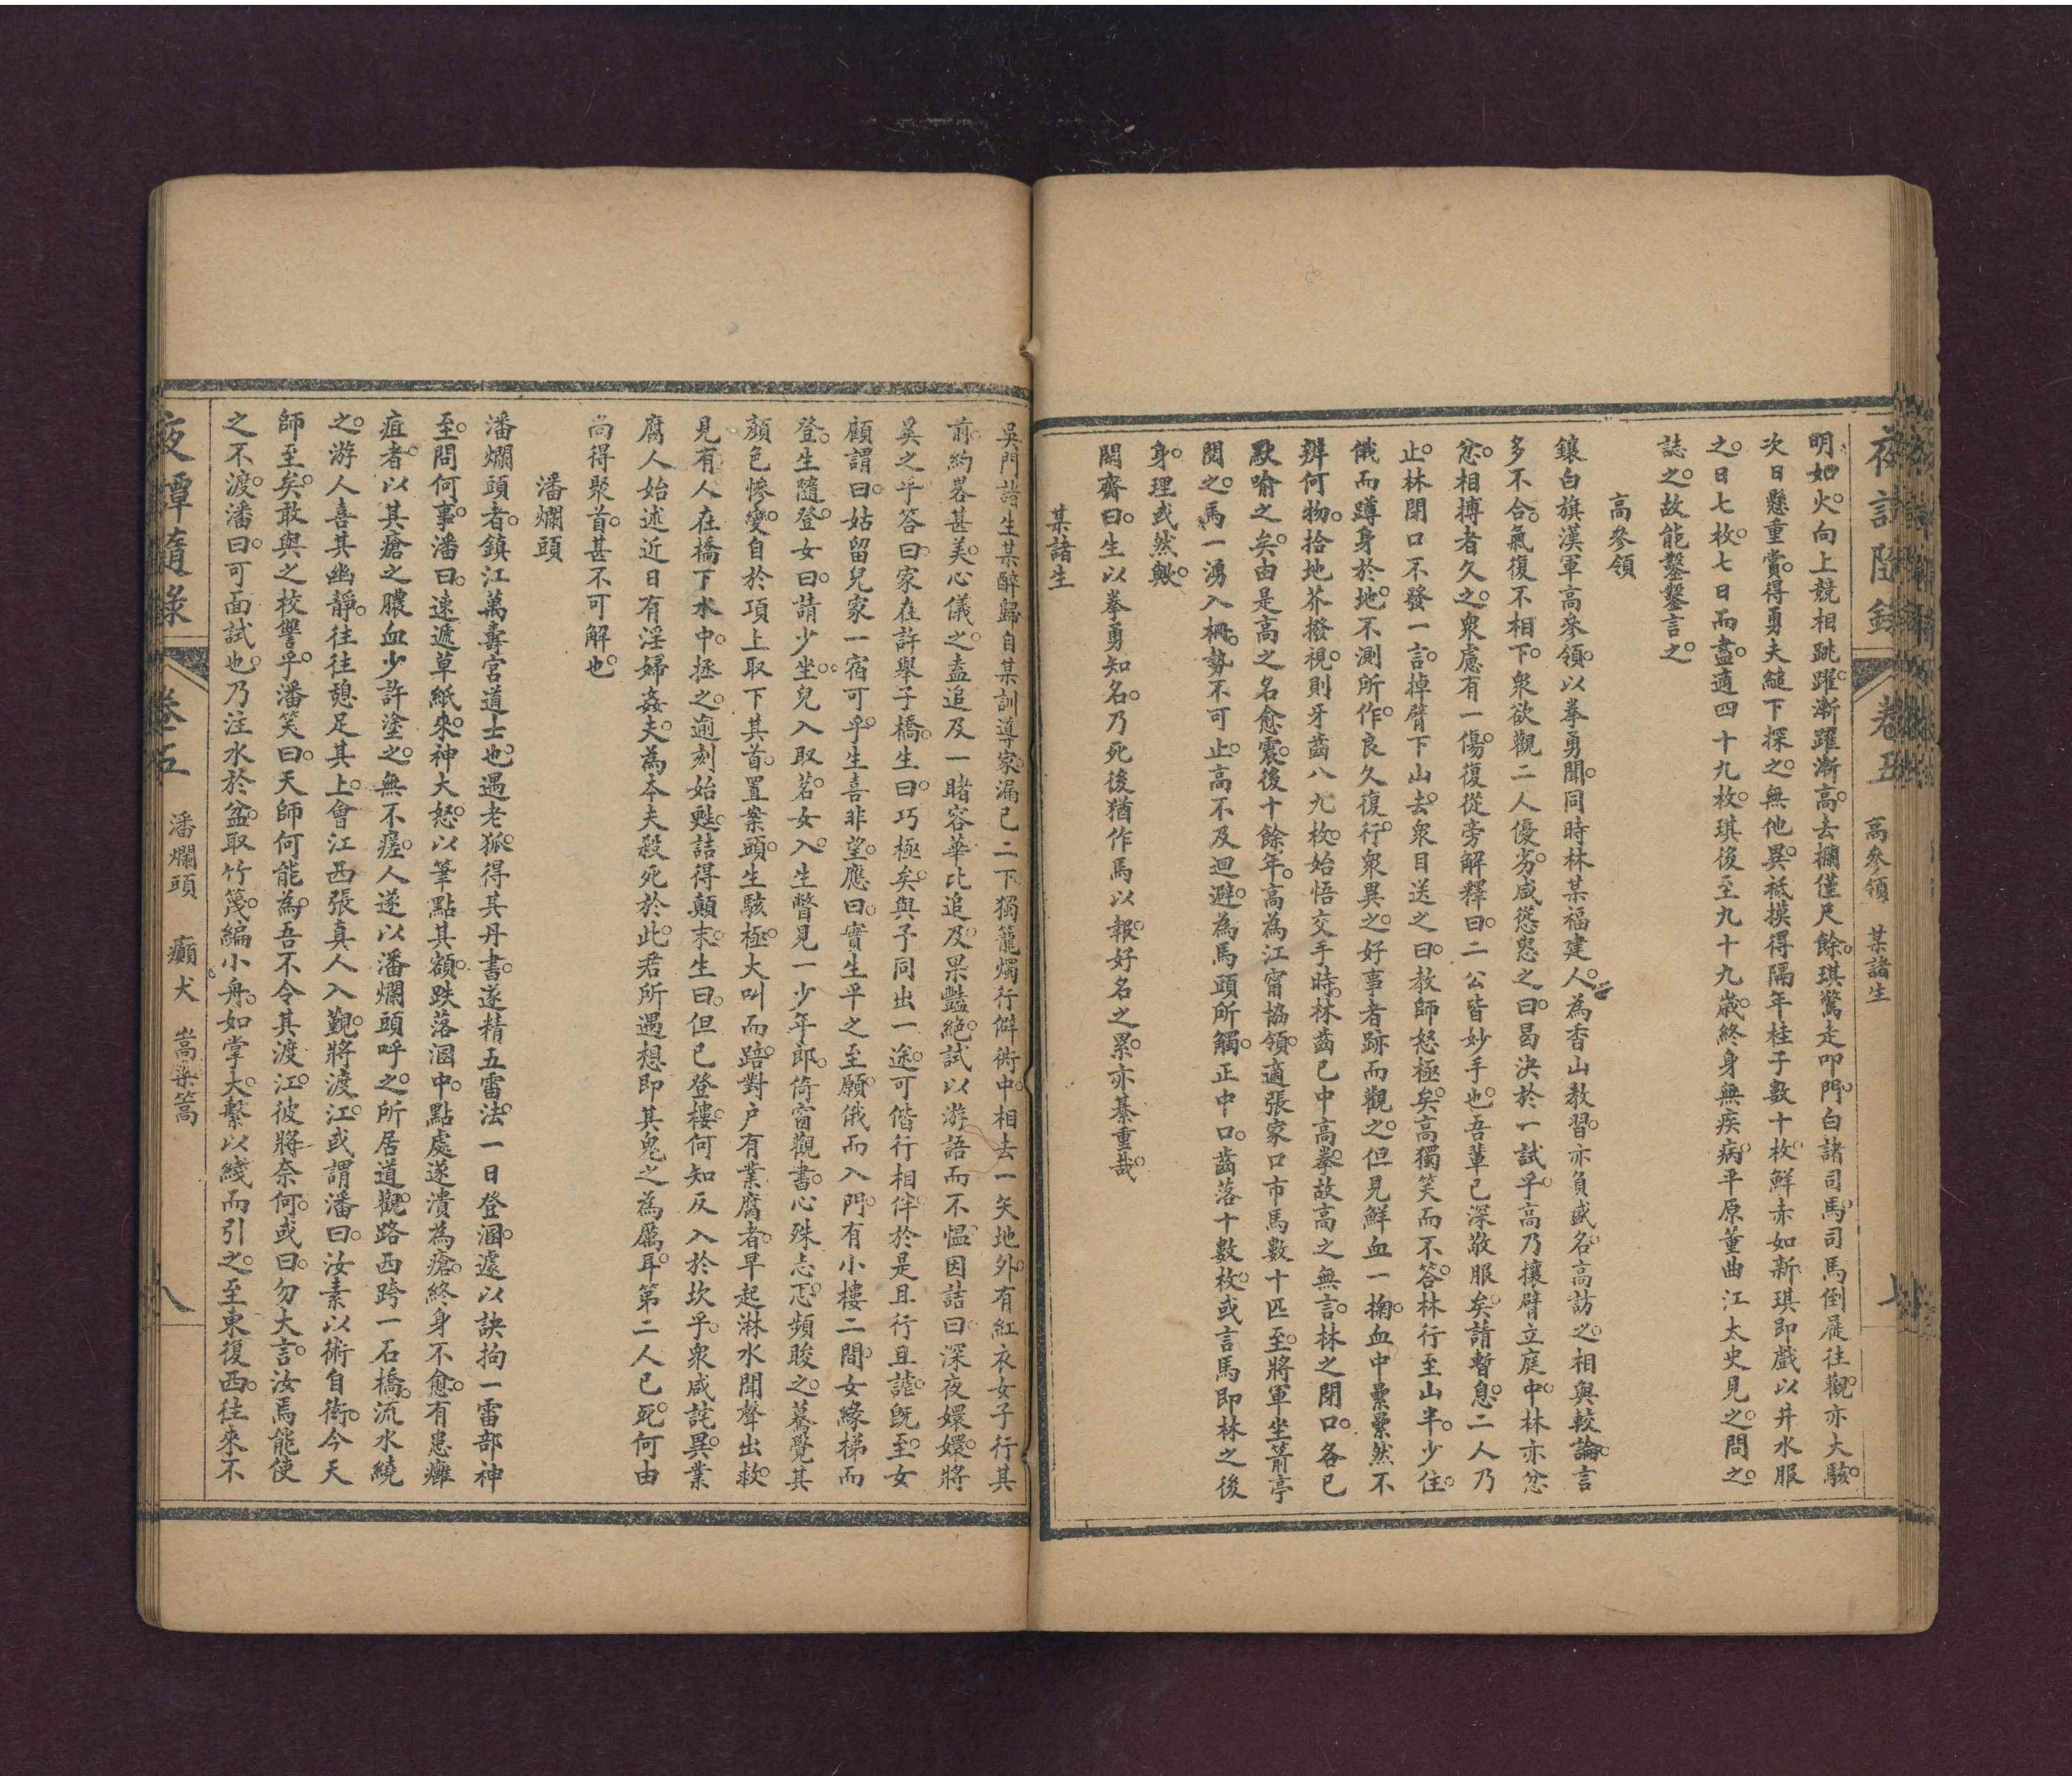 夜譚隨錄 卷五 高參領 某諸生
明如火。向上競相跳躍漸躍漸高去欄僅尺餘。琪驚走叩門。白諸司馬。司馬倒屣往觀。亦大駭。
次日懸重賞。得勇夫縋下探之。無他異。祗摸得隔年桂子數十枚。鮮赤如新。琪即戲以井水服
之。日七枚。七日而盡。適四十九枚。琪後至九十九歲。終身無疾病。平原董曲江太史見之。問之。
誌之。故能鑿鑿言之。
高參領
鑲白旗漢軍高參領。以拳勇聞。同時林某福建人。為香山教習。亦負盛名。高訪之。相與較論。言
多不合。氣復不相下。衆欲觀二人優劣。咸慫恿之。曰曷決於一試乎。高乃攘臂立庭中。林亦忿
忿。相搏者久之。衆慮有一傷。復從旁解釋曰。二公皆妙手也。吾輩已深敬服矣。請暫息。二人乃
止。林閉口不發一言。掉臂下山去。衆目送之曰。教師怒極矣。高獨笑而不答。林行至山半。少住。
俄而蹲身於地。不測所作。良久復行。衆異之。好事者跡而觀之。但見鮮血一掬。血中纍纍然不
辨何物。拾地芥撥視。則牙齒八九枚。始悟交手時。林齒已中高拳。故高之無言。林之閉口。各已
默喻之矣。由是高之名愈震。後十餘年。高為江甯協領。適張家口市馬數十匹至。將軍坐箭亭
閱之。馬一湧入柵。勢不可止。高不及迴避。為馬頭所觸。正中口。齒落十數枚。或言馬即林之後
身。理或然歟。
閑齋曰。生以拳勇知名。乃死後猶作馬以報。好名之累。亦綦重哉。
某諸生
吳門諸生某醉歸自某訓導家。漏已二下。獨籠燭行僻街中。相去一矢地外。有紅衣女子行其
前。約畧甚美。心儀之。盍追及一睹容華。比追及。果豔絕。試以游語。而不慍。因詰曰。深夜嬛嬛。將
奚之乎。答曰。家在許舉子橋。生曰。巧極矣。與予同出一途。可偕行相伴。於是且行且謔。旣至。女
顧謂曰。姑留兒家一宿可乎。生喜非望。應曰。實生平之至願。俄而入門。有小樓二間。女緣梯而
登。生隨登。女曰。請少坐。兒入取茗。女入。生瞥見一少年郎。倚窗觀書。心殊忐忑。頻睃之。驀覺其
顏色慘變。自於項上取下其首。置案頭。生駭極。大叫而踣。對户有業腐者。早起淋水。聞聲出救。
見有人在橋下水中。拯之。逾刻始甦。詰得顛末。生曰。但已登樓。何知反入於坎乎。衆咸詫異。業
腐人始述近日有淫婦姦夫。為本夫殺死於此。君所遇想即其鬼之為厲耳。第二人已死。何由
尚得聚首。甚不可解也。
潘爛頭
潘爛頭者。鎮江萬壽宮道士也。遇老狐。得其丹書。遂精五雷法。一日登溷。遽以訣拘一雷部神
至。問何事。潘曰。速遞草紙來。神大怒。以筆點其額。跌落溷中。點處遂潰為瘡。終身不愈。有患癰
疽者。以其瘡之膿血少許塗之。無不瘥。人遂以潘爛頭呼之。所居道觀。路西跨一石橋。流水繞
之。游人喜其幽靜。往往憩足其上。會江西張真人入覲。將渡江。或謂潘曰。汝素以術自衒。今天
師至矣。敢與之校讐乎。潘笑曰。天師何能為。吾不令其渡江。彼將奈何。或曰。勿大言。汝焉能使
之不渡。潘曰。可面試也。乃注水於盆。取竹篾。編小舟。如掌大。繫以綫而引之。至東復西。往來不
夜譚隨錄 卷五 潘爛頭 癲犬 嵩梁篙 八